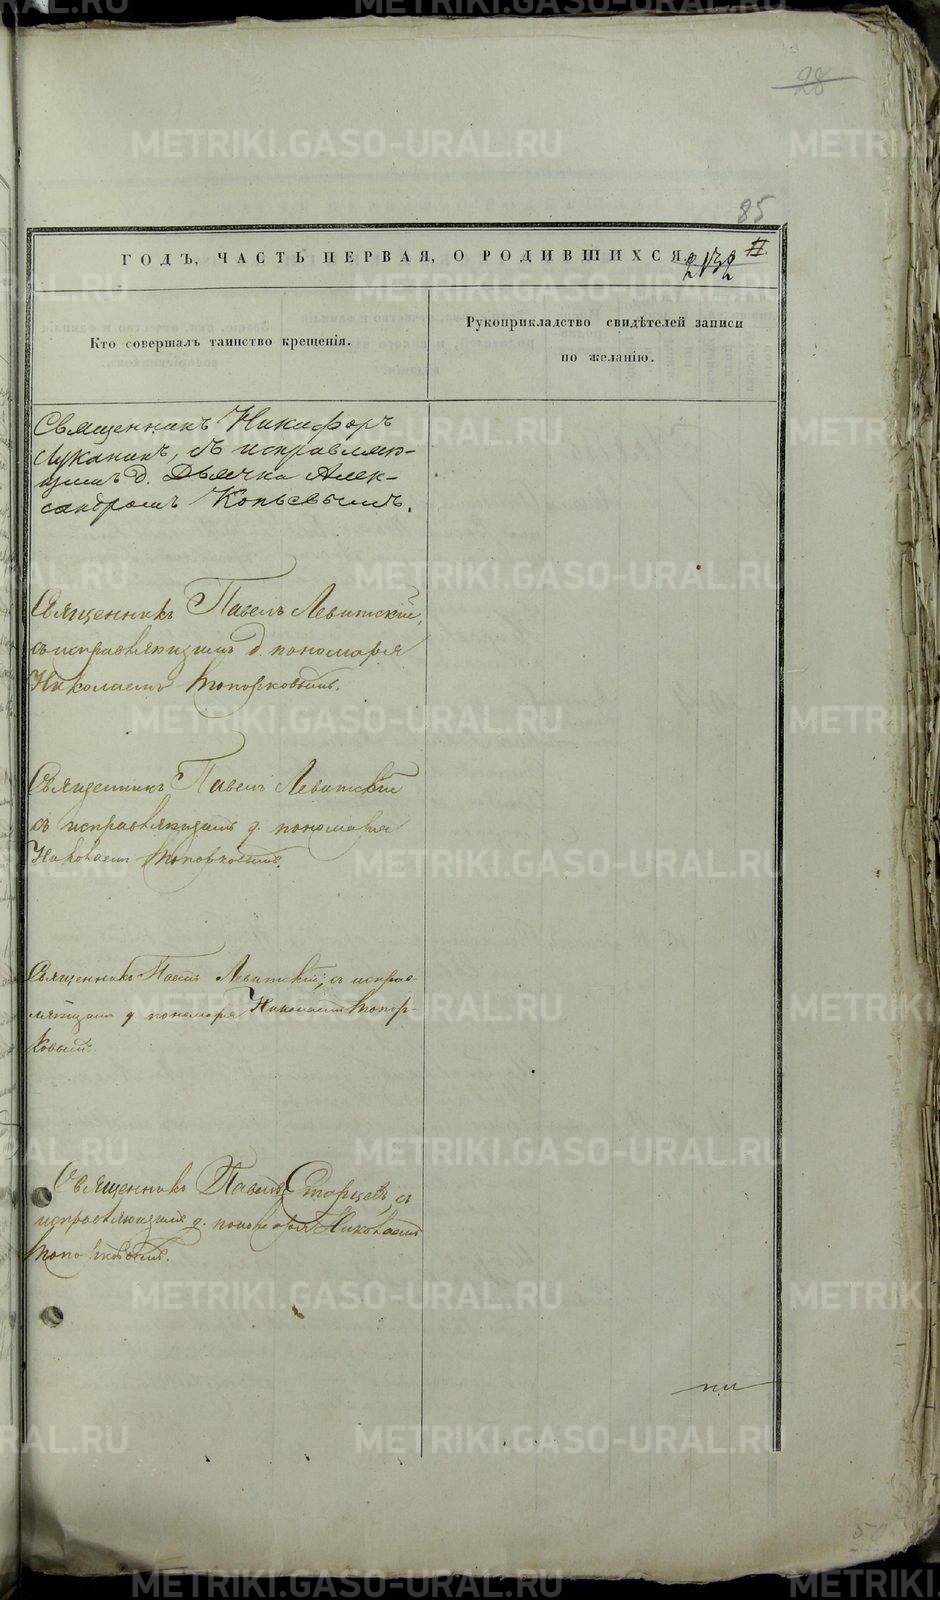 28
85
ГОДЪ, ЧАСТЬ ПЕРВАЯ, О РОДИВШИХСЯ
Кто совершалъ таинство крещенія.
Рукоприкладство свидѣтелей записи
по желанію.
Священникъ Никифоръ
Луканинъ, съ исправляю-
щимъ д. Дьячка Алек-
сандромъ Копьевымъ.
Священникъ Павелъ Левитскій,
съ исправляющимъ д. пономаря
Николаемъ Топорковымъ.
Священникъ Павелъ Левитскій
съ исправляющимъ д. пономаря
Николаемъ Топорковымъ.
Священникъ Павелъ Левитскій, съ исправ-
ляющимъ д. пономаря Николаемъ Топор-
ковымъ.
Священникъ Павелъ Старцевъ, съ
исправляющимъ д. пономаря Николаемъ
Топорковымъ.
METRIKI.GASO-URAL.RU